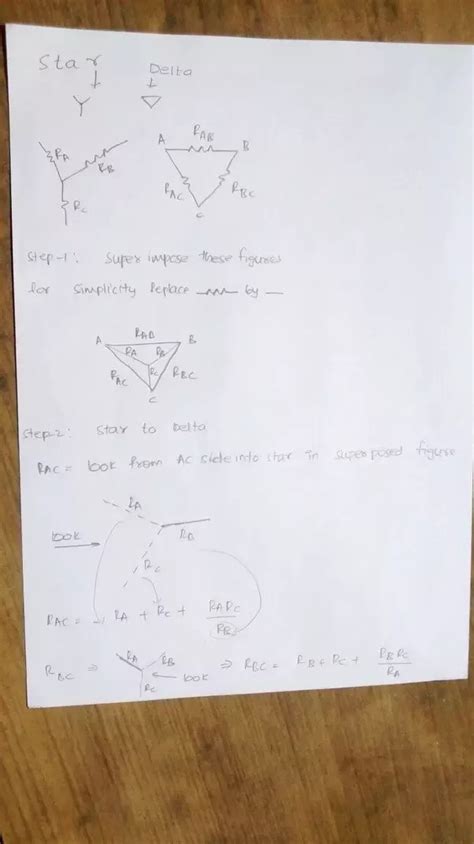 Star Delta
RA RB RC
A RAB B
RAC RBC
C
Step-1: Super impose these figures
for simplicity Replace by
A RAB B
RA RB
RAC RC RBC
C
Step-2: Star to Delta
RAC = look from AC side into star in super posed figure
RA
look
RC
RAC = RA + RC + RARC/RB
RBC ⇒ RA RB RC ← look ⇒ RBC = RB + RC + RBRC/RA